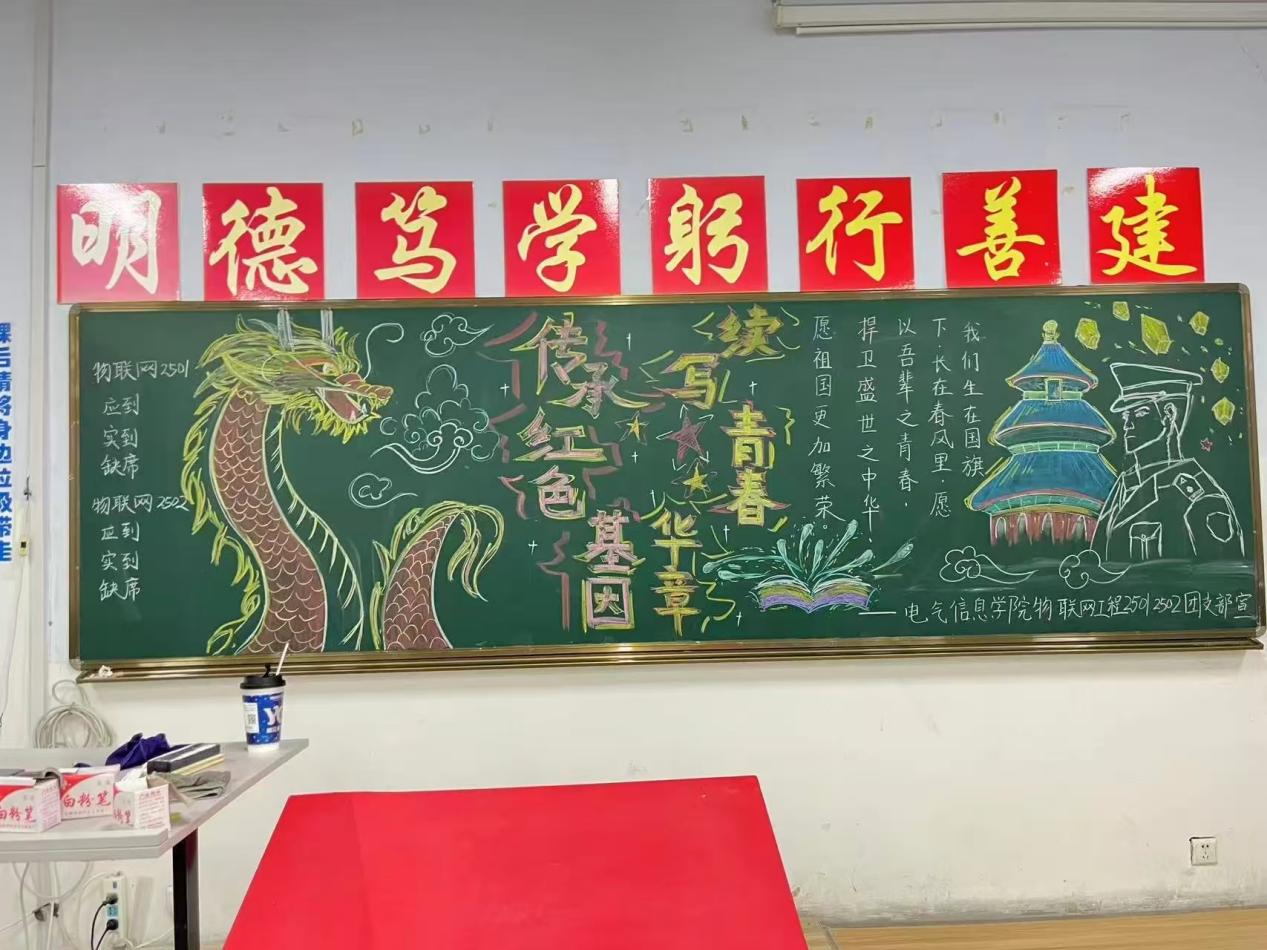 明德笃学躬行善建
物联网2501
应到
实到
缺席
物联网2502
应到
实到
缺席
传承红色基因
续写青春华章
我们生在国旗
下·长在春风里·愿
以吾辈之青春，
捍卫盛世之中华·
愿祖国更加繁荣。
——电气信息学院物联网工程2501 2502团支部宣
课后请将身边垃圾带走
白粉笔
白粉笔